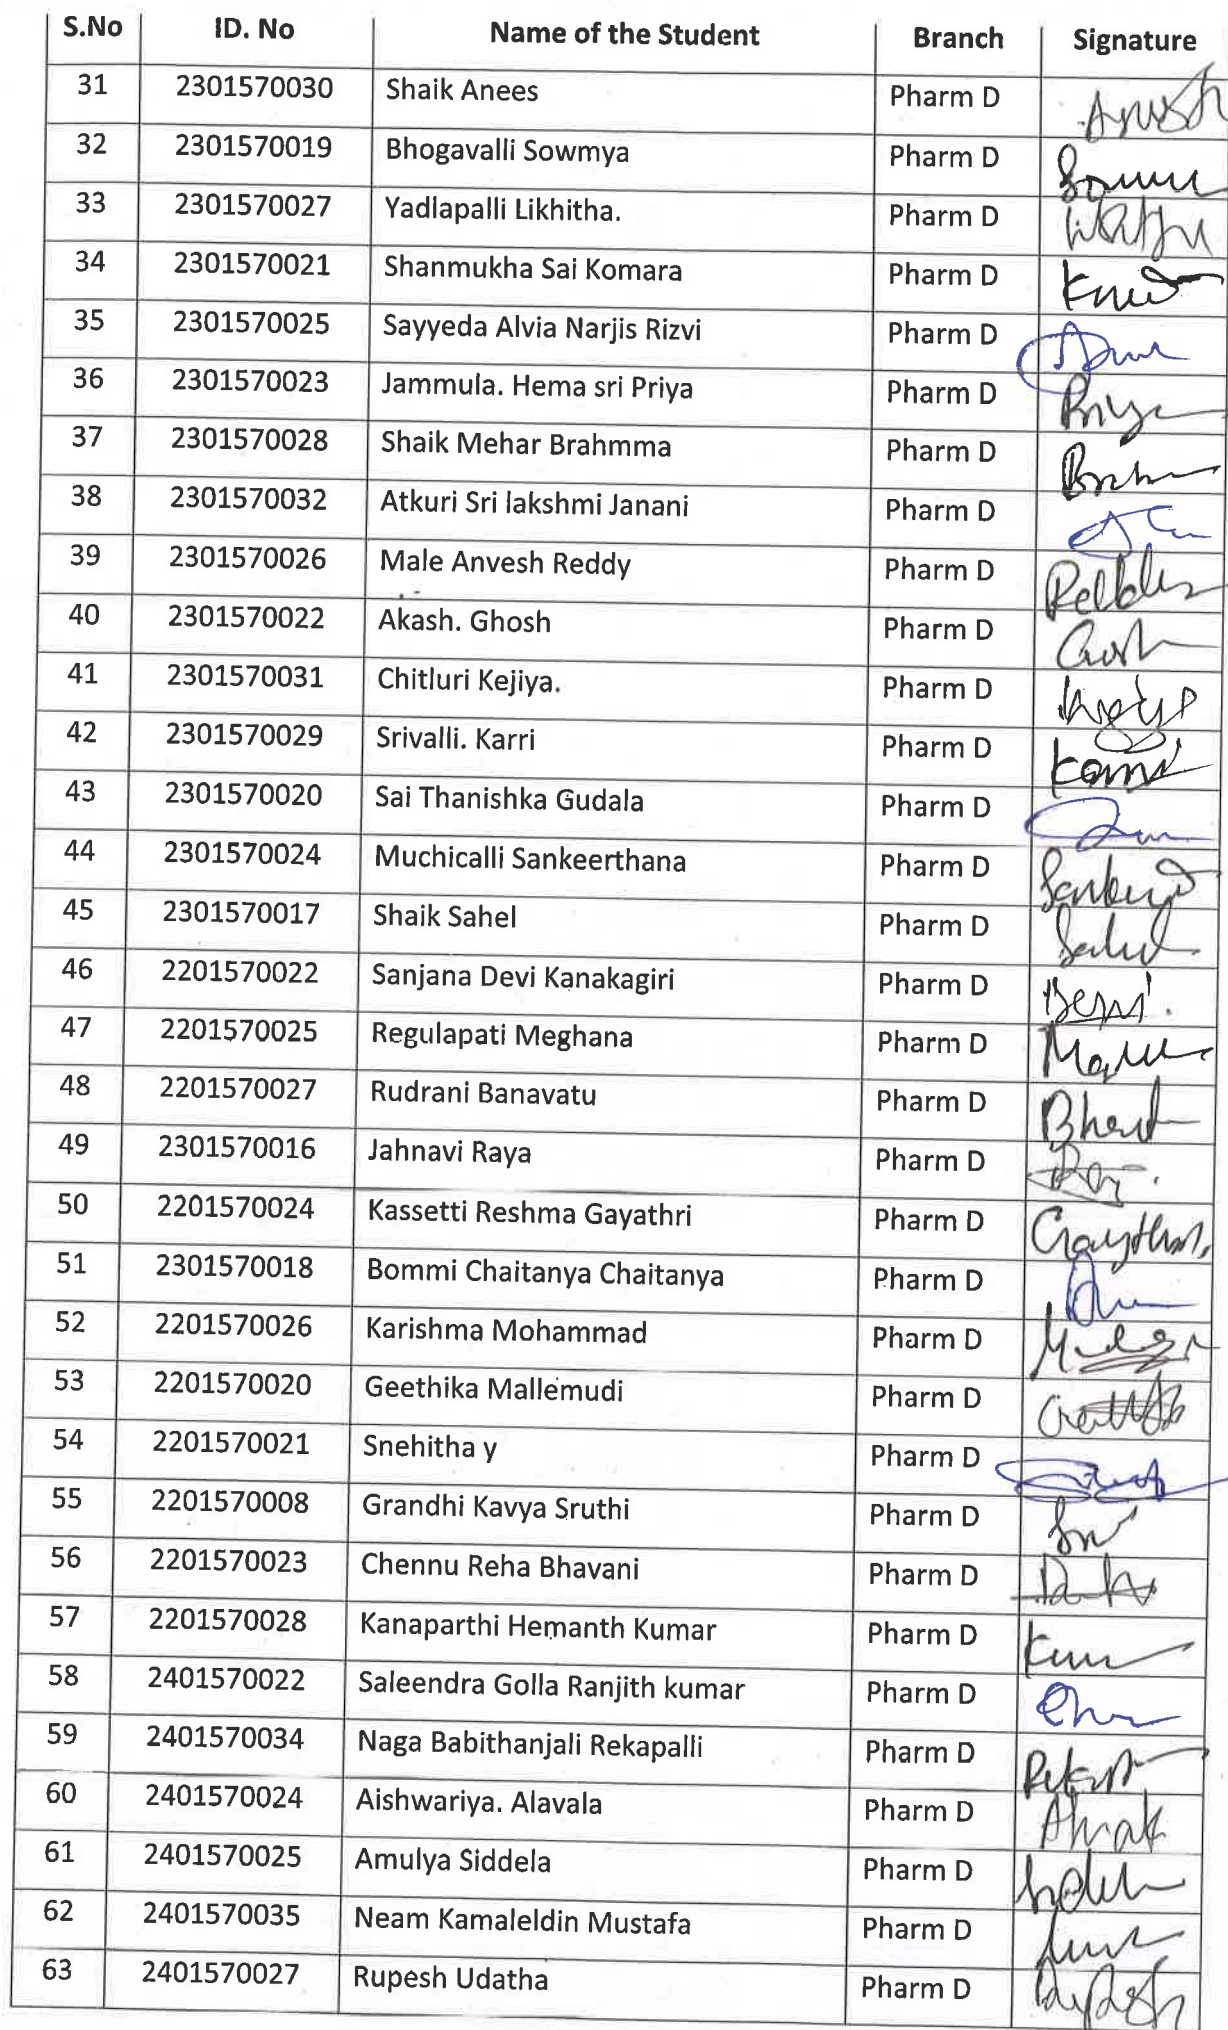 S.No ID. No Name of the Student Branch Signature
31 2301570030 Shaik Anees Pharm D
32 2301570019 Bhogavalli Sowmya Pharm D
33 2301570027 Yadlapalli Likhitha. Pharm D
34 2301570021 Shanmukha Sai Komara Pharm D
35 2301570025 Sayyeda Alvia Narjis Rizvi Pharm D
36 2301570023 Jammula. Hema sri Priya Pharm D Priya
37 2301570028 Shaik Mehar Brahmma Pharm D
38 2301570032 Atkuri Sri lakshmi Janani Pharm D
39 2301570026 Male Anvesh Reddy Pharm D
40 2301570022 Akash. Ghosh Pharm D
41 2301570031 Chitluri Kejiya. Pharm D
42 2301570029 Srivalli. Karri Pharm D
43 2301570020 Sai Thanishka Gudala Pharm D
44 2301570024 Muchicalli Sankeerthana Pharm D
45 2301570017 Shaik Sahel Pharm D
46 2201570022 Sanjana Devi Kanakagiri Pharm D
47 2201570025 Regulapati Meghana Pharm D
48 2201570027 Rudrani Banavatu Pharm D
49 2301570016 Jahnavi Raya Pharm D
50 2201570024 Kassetti Reshma Gayathri Pharm D
51 2301570018 Bommi Chaitanya Chaitanya Pharm D
52 2201570026 Karishma Mohammad Pharm D
53 2201570020 Geethika Mallemudi Pharm D
54 2201570021 Snehitha y Pharm D
55 2201570008 Grandhi Kavya Sruthi Pharm D
56 2201570023 Chennu Reha Bhavani Pharm D
57 2201570028 Kanaparthi Hemanth Kumar Pharm D
58 2401570022 Saleendra Golla Ranjith kumar Pharm D
59 2401570034 Naga Babithanjali Rekapalli Pharm D
60 2401570024 Aishwariya. Alavala Pharm D
61 2401570025 Amulya Siddela Pharm D
62 2401570035 Neam Kamaleldin Mustafa Pharm D
63 2401570027 Rupesh Udatha Pharm D